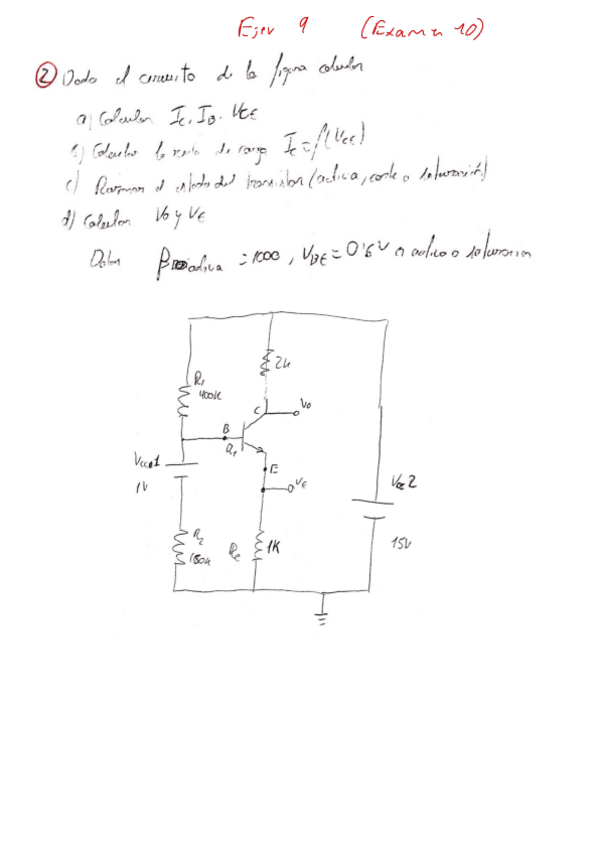 Ejer 9 (Examen 10)
② Dado el circuito de la figura calcular
a) Calcular Ic, IB, VCE
b) Calcular la recta de carga Ic = f(VCE)
c) Razonar el estado del transistor (activa, corte o saturación)
d) Calcular Vo y VE
Datos β activa = 1000, VBE = 0'6V en activa o saturacion
2k
R1
400k
C
Vo
B
Q1
Vcc1
E
1V
VE
Vcc2
R2
Re
1K
15V